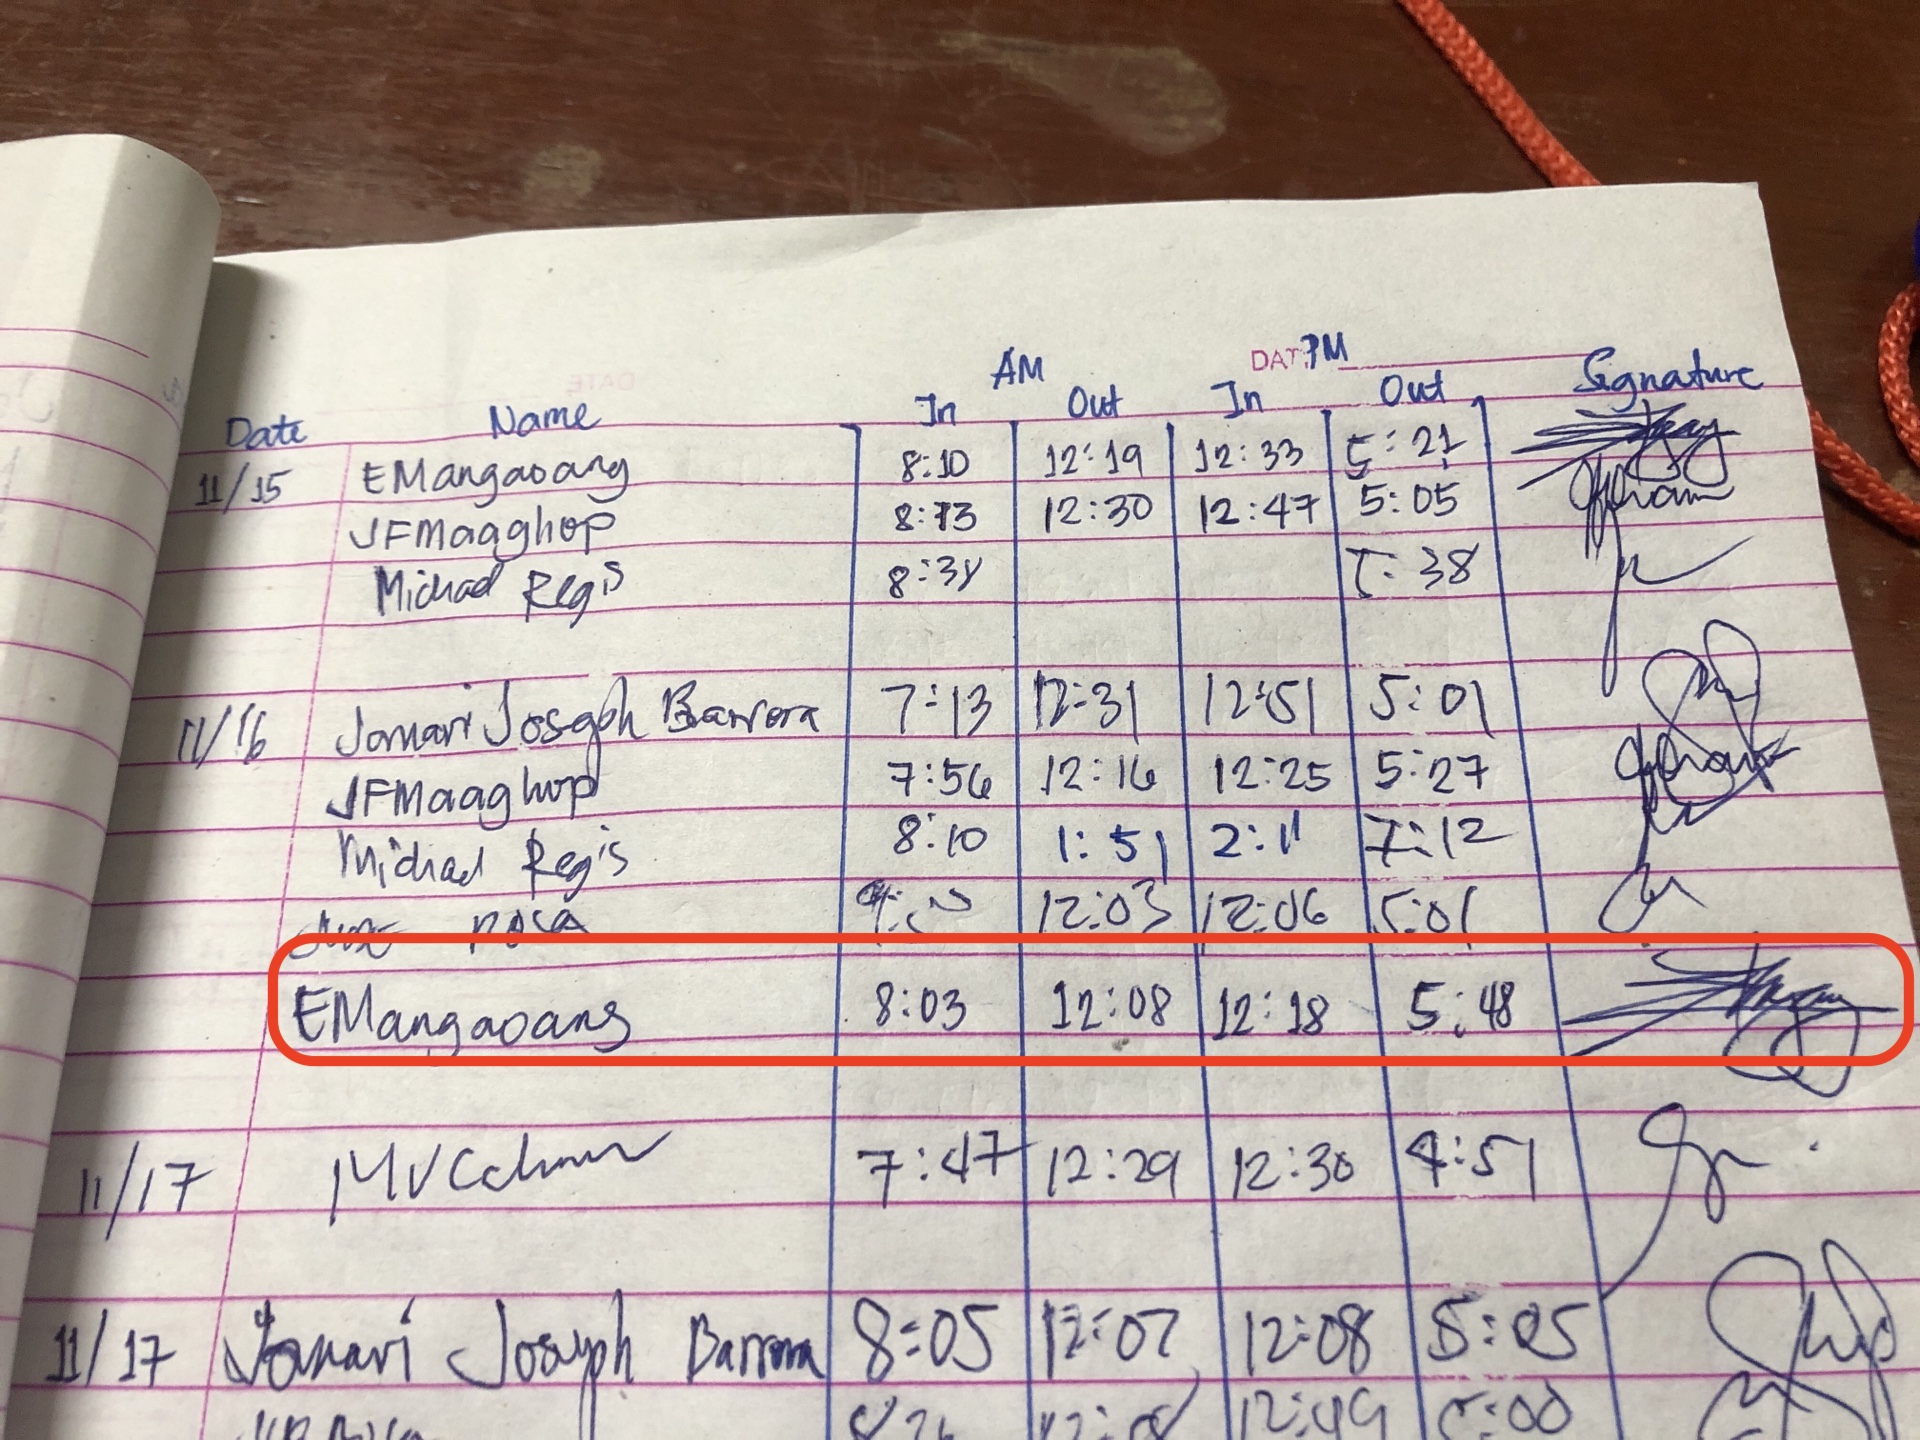 AM DATE PM
Date Name In Out In Out Signature
11/15 EMangaoang 8:10 12:19 12:33 5:21
JFMaaghop 8:13 12:30 12:47 5:05
Michael Regis 8:34 5:38
11/16 Jomari Joseph Barrera 7:13 12:31 12:51 5:01
JFMaaghop 7:56 12:16 12:25 5:27
Michael Regis 8:10 1:51 2:11 7:12
12:03 12:06 5:01
EMangaoang 8:03 12:08 12:18 5:48
11/17 7:47 12:29 12:30 4:51
11/17 Jomari Joseph Barrera 8:05 12:07 12:08 5:05
12:49 5:00